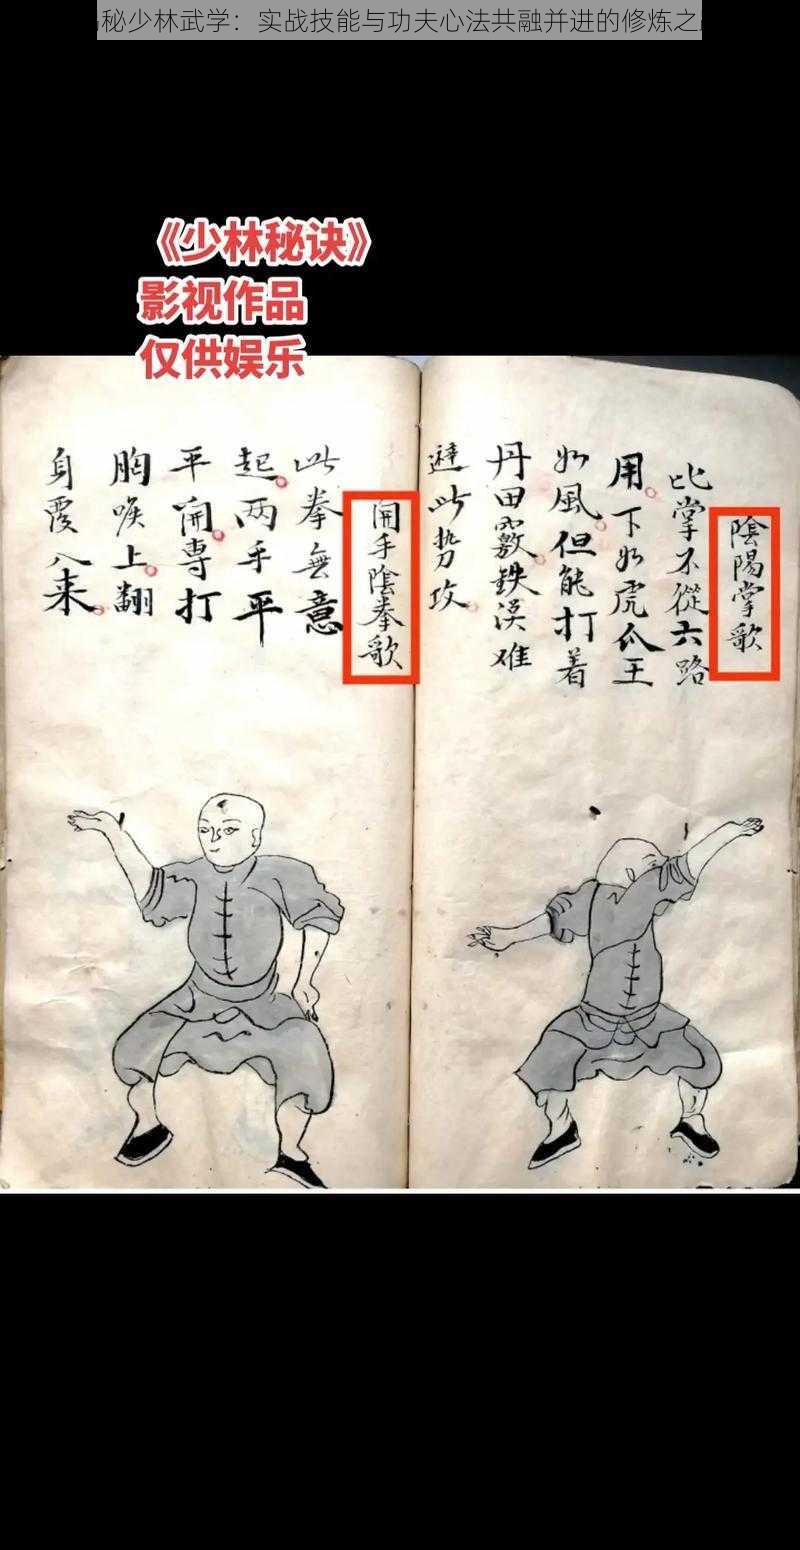 秘少林武学：实战技能与功夫心法共融并进的修炼之
《少林秘诀》
影视作品
仅供娱乐
陰陽掌歌
比掌不從六路
用下如虎爪王
如風但能打着
丹田竅鉄漢难
避此勢攻
開手陰拳歌
此拳無意
起两手平
平開専打
胸喉上翻
身覆入来